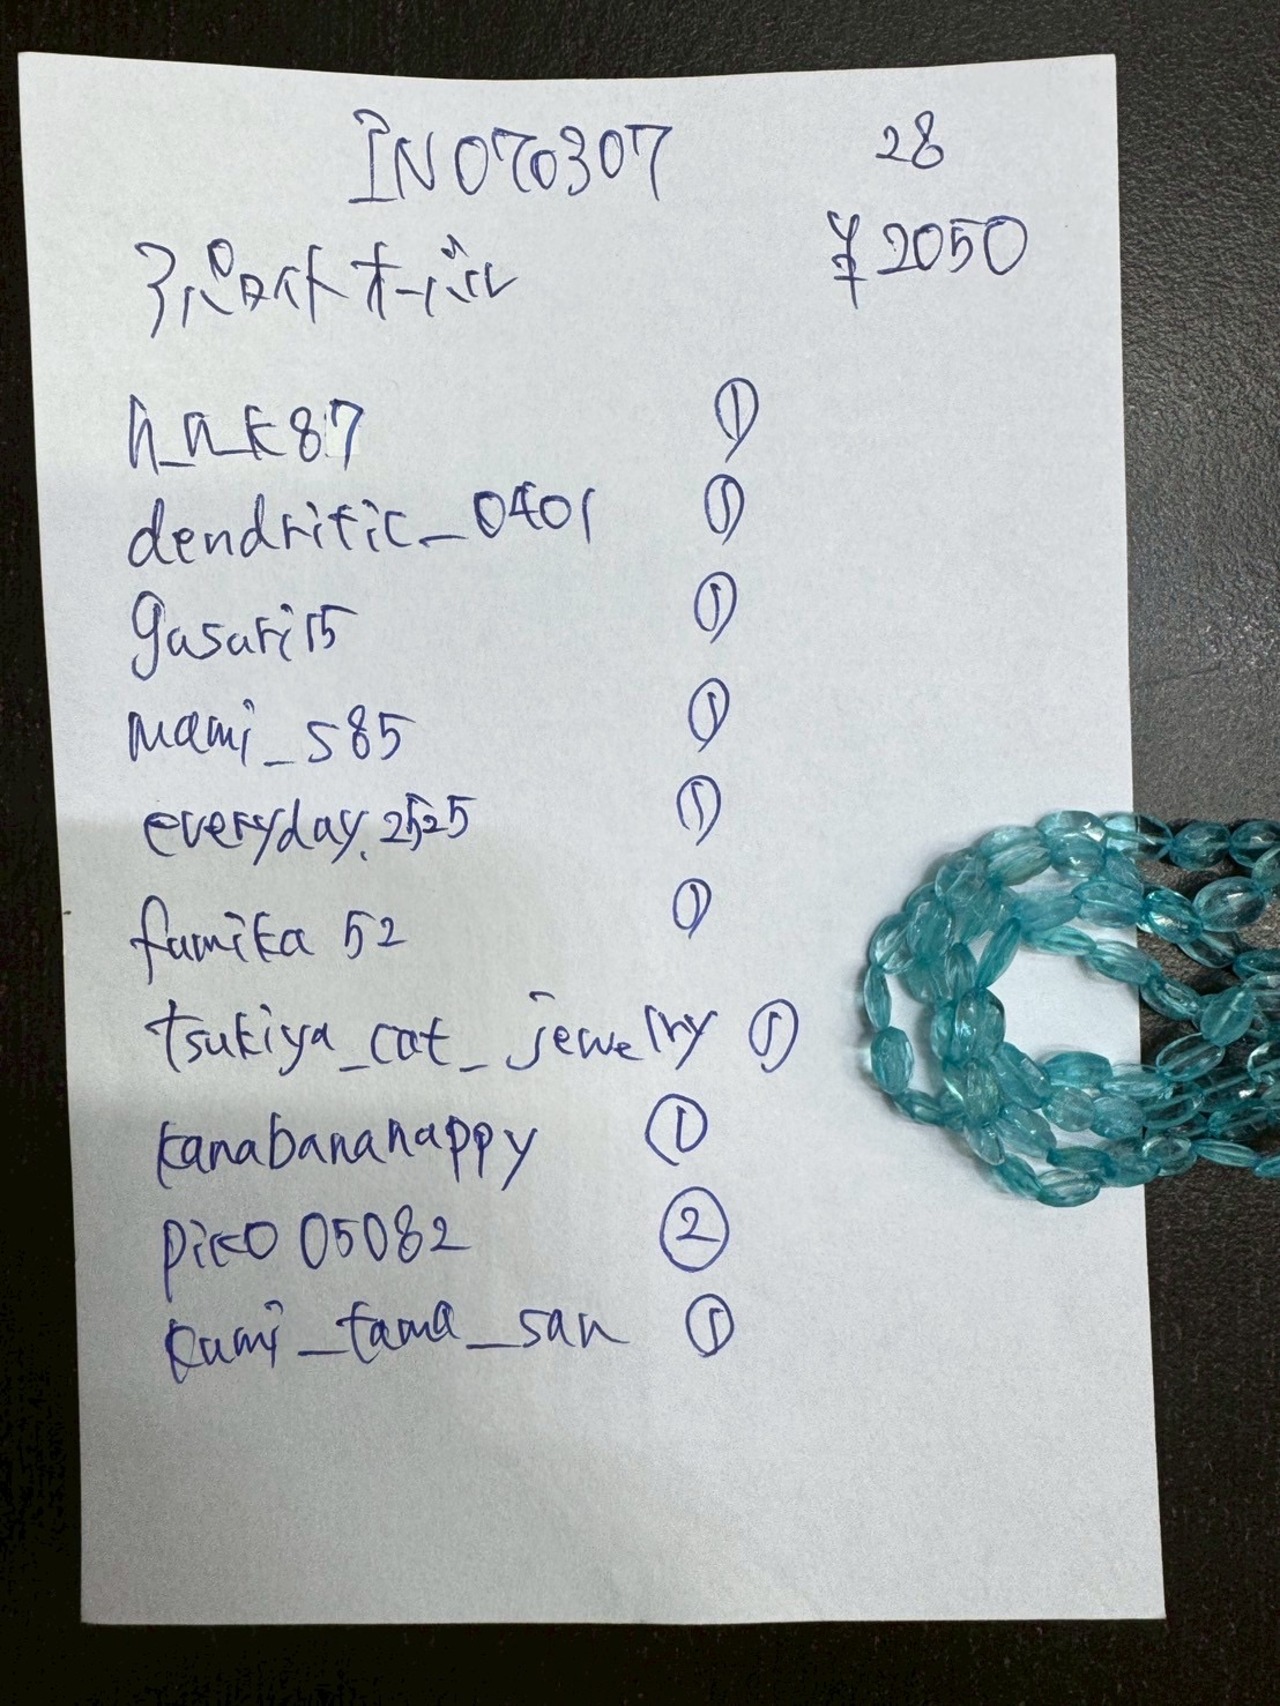 IN070307 28
アパタイトオーバル ¥2050
h_n_k87 ①
dendritic_0401 ①
gasari15 ①
mami_s85 ①
everyday.2525 ①
fumika52 ①
tsukiya_cat_jewelry ①
kanabananappy ①
pico05082 ②
kumi_tama_san ①